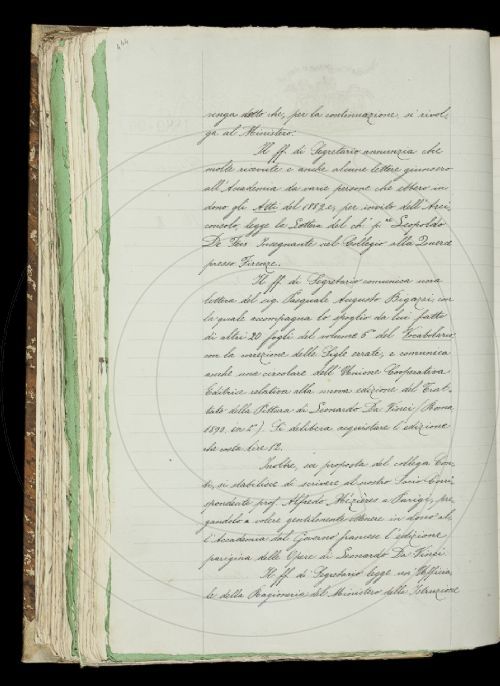 444
venga detto che, per la continuazione si rivol-
ga al Ministero.
Il ff. di Segretario annunzia che
molte ricevute e anche alcune lettere giunsero
all'Accademia da varie persone che ebbero in
dono gli Atti del 1889 e, per invito dell'Arci-
consolo, legge la Lettera del ch. Leopoldo
De Insegnante nel Collegio alla Querce
presso Firenze.
Il ff. di Segretario comunica una
lettera del sig. Pasquale Augusto Bigazzi, con
la quale accompagna lo spoglio da lui fatto
di altri 20 fogli del volume 6° del Vocabolario
con la correzione delle Sigle errate, e comunica
anche una circolare dell'Unione Cooperativa
Editrice relativa alla nuova edizione del Trat-
tato della Pittura di Leonardo Da Vinci (Roma
1890, in 4°). Si delibera acquistare l'edizione
che costa lire 12.
Inoltre, su proposta del collega Con-
ti, si stabilisce di scrivere al nostro Socio Corri-
spondente prof. Alfredo Mézières a Parigi, pre-
gandolo a volere gentilmente ottenere in dono al-
l'Accademia dal Governo francese l'edizione
parigina delle Opere di Leonardo Da Vinci.
Il ff. di Segretario legge un'Officia-
le della Ragioneria del Ministero della Istruzione